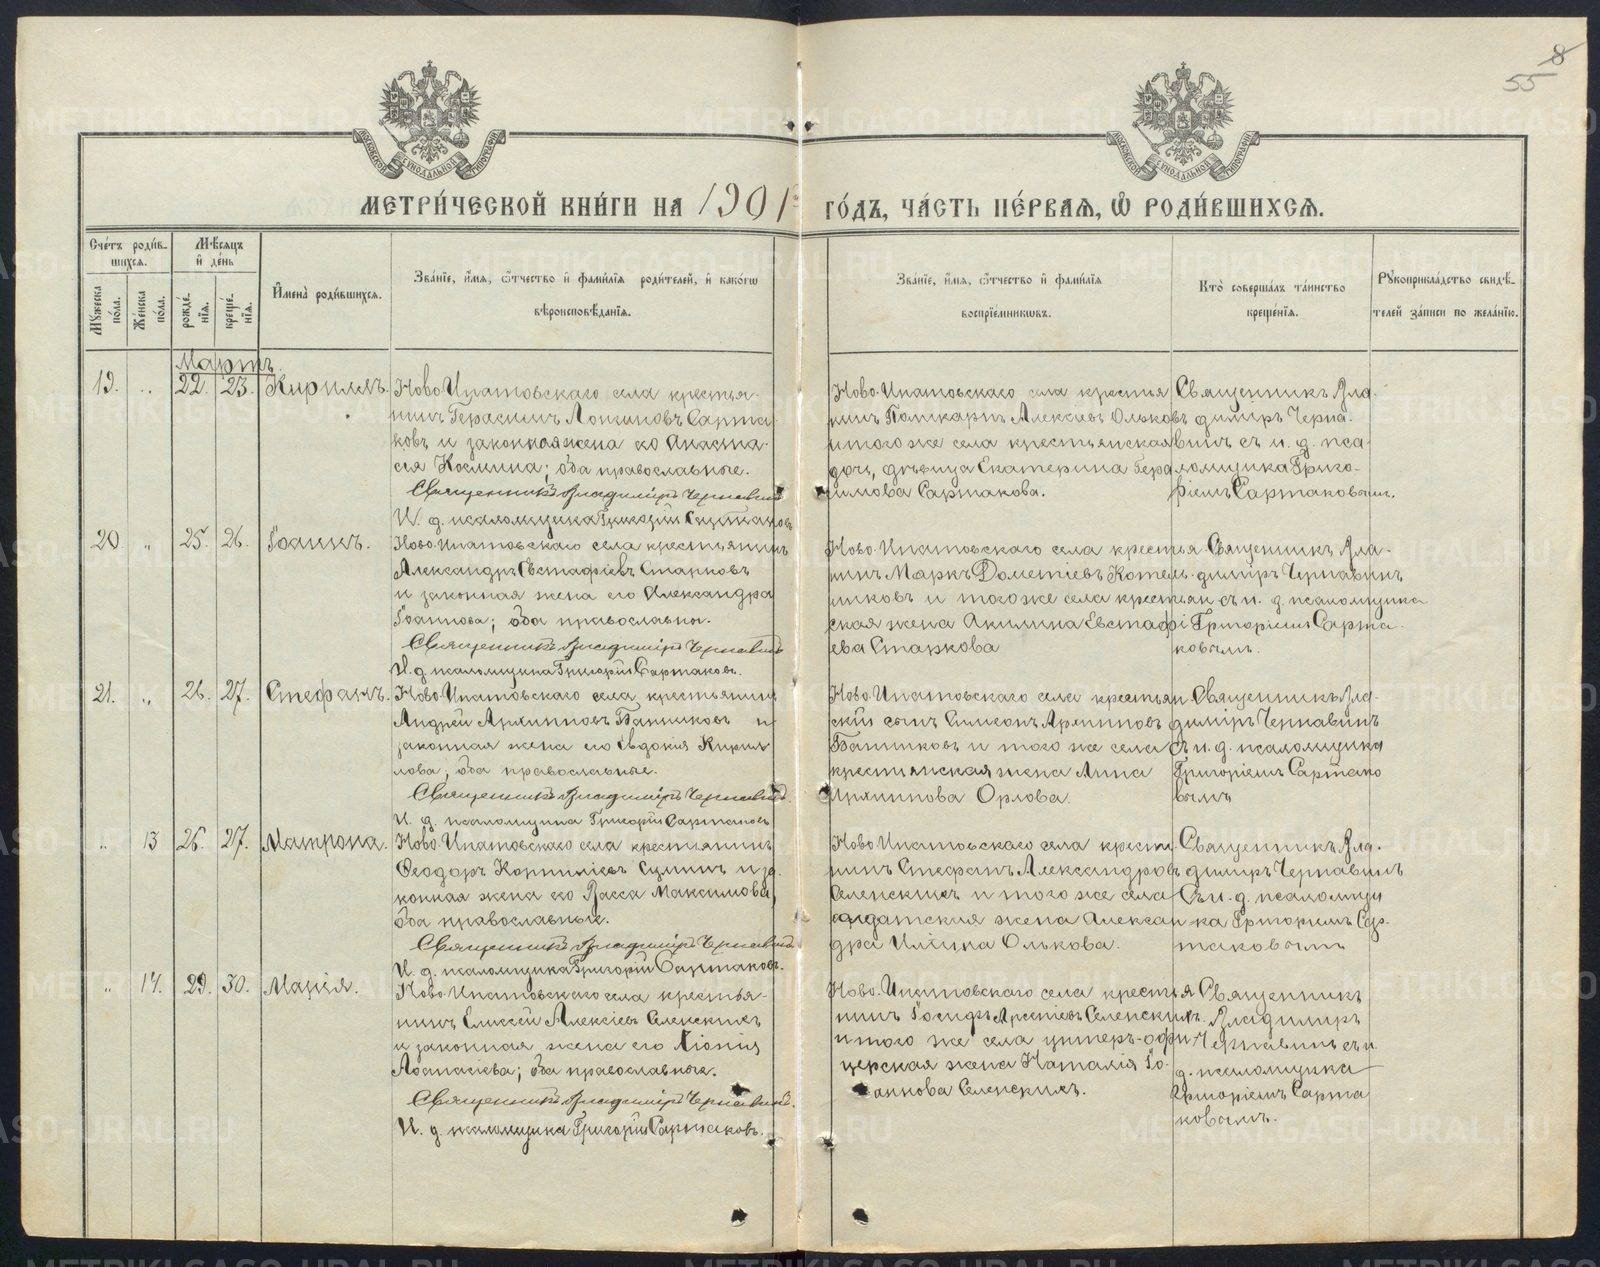 8
55
МОСКОВСКОЙ СѴНОДАЛЬНОЙ ТИПОГРАФІИ
МОСКОВСКОЙ СѴНОДАЛЬНОЙ ТИПОГРАФІИ
МЕТРИ́ЧЕСКОЙ КНИ́ГИ НА 1901 ГО́ДЪ, ЧА́СТЬ ПЕ́РВАЯ, Ѽ РОДИ́ВШИХСЯ.
Сче́тъ роди́в-
шихся.
Мѣ́сяцъ
и҆ де́нь
Му́жеска
по́ла.
Же́нска
по́ла.
рожде́-
нія.
креще́-
нія.
И҆мена̀ роди́вшихся.
Зва́ніе, и҆́мя, ѻ҆́тчество и҆ фами́лія роди́телей, и҆ како́гѡ
вѣроисповѣ́данія.
Зва́ніе, и҆́мя, ѻ҆́тчество и҆ фами́лія
воспріе́мникѡвъ.
Кто̀ соверша́лъ та́инство
креще́нія.
Рꙋкоприкла́дство свидѣ́-
телей за́писи по жела́нію.
Мартъ.
19. „ 22. 23. Кириллъ.
Ново-Ипатовскаго села крестья-
нинъ Герасимъ Логиновъ Сарта
ковъ и законная жена его Анаста-
сія Космина; оба православные.
Священникъ Владиміръ Чернавинъ
И. д. псаломщика Григорій Сартаковъ
Ново-Ипатовскаго села крестья
нинъ Поликарпъ Алексіевъ Ольковъ
и того же села крестьянская
дочь, дѣвица Екатерина Гера
симова Сартакова.
Священникъ Вла-
диміръ Черна-
винъ съ и. д. пса-
ломщика Григо-
ріемъ Сартаковымъ.
20. „ 25. 26. Іоаннъ.
Ново-Ипатовскаго села крестьянинъ
Александръ Евстафіевъ Старковъ
и законная жена его Александра
Іоаннова; оба православны.
Священникъ Владиміръ Чернавинъ
И. д. псаломщика Григорій Сартаковъ.
Ново-Ипатовскаго села крестья
нинъ Маркъ Дометіевъ Котель-
никовъ и того же села крестьян
ская жена Акилина Евстафі
ева Старкова
Священникъ Вла-
диміръ Чернавинъ
съ и. д. псаломщика
Григоріемъ Сарта-
ковымъ.
21. „ 26. 27. Стефанъ.
Ново-Ипатовскаго села крестьянинъ
Андрей Архипповъ Банниковъ и
законная жена его Евдокія Кирил
лова; оба православные.
Священникъ Владиміръ Чернавинъ.
И. д. псаломщика Григорій Сартаковъ
Ново-Ипатовскаго села крестьян
скій сынъ Симеонъ Архипповъ
Банниковъ и того же села
крестьянская жена Анна
Архиппова Орлова.
Священникъ Вла-
диміръ Чернавинъ
съ и. д. псаломщика
Григоріемъ Сартако
вымъ
„ 13 26. 27. Матрона.
Ново-Ипатовскаго села крестьянинъ
Ѳеодоръ Корниліевъ и за-
конная жена его Васса Максимова,
оба православные.
Священникъ Владиміръ Чернавинъ
И. д. псаломщика Григорій Сартаковъ.
Ново-Ипатовскаго села крестья
нинъ Стефанъ Александровъ
Селенскихъ и того же села
солдатская жена Алексан
дра Ильина Олькова.
Священникъ Вла-
диміръ Чернавинъ
Съ и. д. псаломщи
ка Григоріемъ Сар-
таковымъ
„ 14. 29. 30. Марія.
Ново-Ипатовскаго села крестья-
нинъ Елисей Алексіевъ Селенскихъ
и законная жена его Хіонія
Аѳанасіева; оба православные.
Священникъ Владиміръ Чернавинъ.
И. д. псаломщика Григорій Сартаковъ.
Ново-Ипатовскаго села крестья
нинъ Іосифъ Арсеніевъ Селенскихъ
и того же села унтеръ-офи
церская жена Наталія Іо-
аннова Селенскихъ.
Священникъ
Владиміръ
Чернавинъ съ и
д. псаломщика
Григоріемъ Сарта
ковымъ.